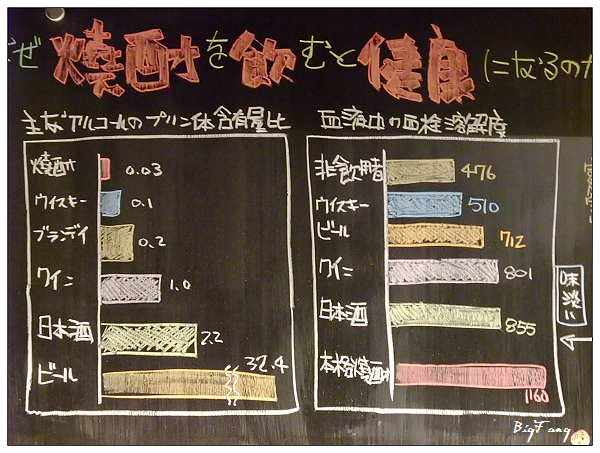 なぜ焼酎を飲むと健康になるのか
主なアルコールのプリン体含有量比
焼酎 0.03
ウイスキー 0.1
ブランデイ 0.2
ワイン 1.0
日本酒 2.2
ビール 32.4
血液中の血栓溶解度
非飲酒時 476
ウイスキー 510
ビール 712
ワイン 801
日本酒 855
本格焼酎 1160
BigFang